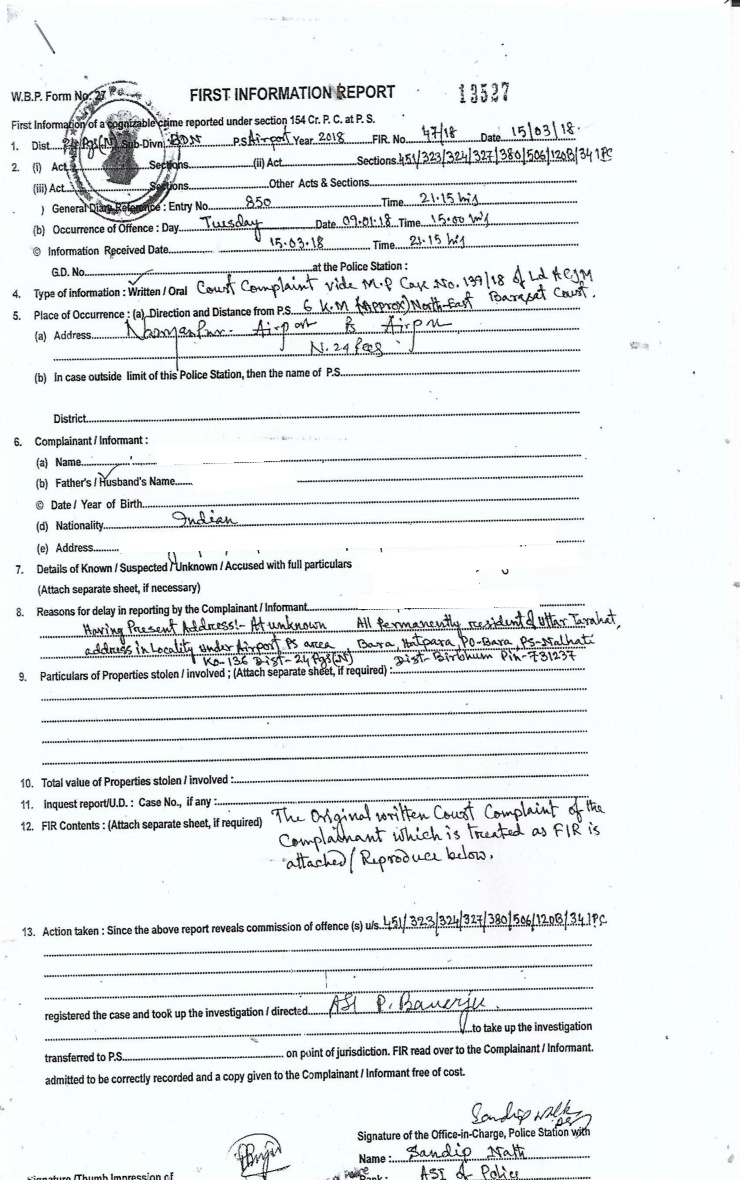 W.B.P. Form No. 27
FIRST INFORMATION REPORT
13527
First Information of a cognizable crime reported under section 154 Cr. P. C. at P. S.
1. Dist. 24 Pgs(N) Sub-Divn. BDN P.S Airport Year 2018 FIR. No. 47/18 Date 15/03/18.
2. (i) Act Sections (ii) Act Sections 451/323/324/327/380/506/120B/34 IPC
(iii) Act Sections Other Acts & Sections
) General Diary Reference : Entry No. 850 Time 21.15 hrs
(b) Occurrence of Offence : Day Tuesday Date 09.01.18 Time 15.00 hrs
© Information Received Date 15.03.18 Time 21.15 hrs
G.D. No. at the Police Station :
4. Type of information : Written / Oral Court Complaint vide M.P Case No. 139/18 of Ld ACJM
Barasat Court.
5. Place of Occurrence : (a) Direction and Distance from P.S. 6 K.M (Approx) North-East
(a) Address Airport Ps Airport
N. 24 Pgs
(b) In case outside limit of this Police Station, then the name of P.S.
District
6. Complainant / Informant :
(a) Name
(b) Father's / Husband's Name
© Date / Year of Birth
(d) Nationality Indian
(e) Address
7. Details of Known / Suspected / Unknown / Accused with full particulars
(Attach separate sheet, if necessary)
8. Reasons for delay in reporting by the Complainant / Informant
Having Present Address:- At unknown All Permanently resident of Uttar Tarahat,
address in Locality under Airport Ps area Bara Hatpara PO-Bara, PS-Nalhati
Ko-136 Dist-24 Pgs(N) Dist- Birbhum Pin-731237
9. Particulars of Properties stolen / involved ; (Attach separate sheet, if required) :
10. Total value of Properties stolen / involved :
11. Inquest report/U.D. : Case No., if any :
12. FIR Contents : (Attach separate sheet, if required) The Original written Court Complaint of the
Complainant which is treated as FIR is
attached/ Reproduce below.
13. Action taken : Since the above report reveals commission of offence (s) u/s. 451/323/324/327/380/506/120B/34 IPC
registered the case and took up the investigation / directed ASI P. Banerjee
to take up the investigation
transferred to P.S. on point of jurisdiction. FIR read over to the Complainant / Informant.
admitted to be correctly recorded and a copy given to the Complainant / Informant free of cost.
Signature of the Office-in-Charge, Police Station with
Name : Sandip Nath
Signature /Thumb Impression of
Rank : ASI of Police